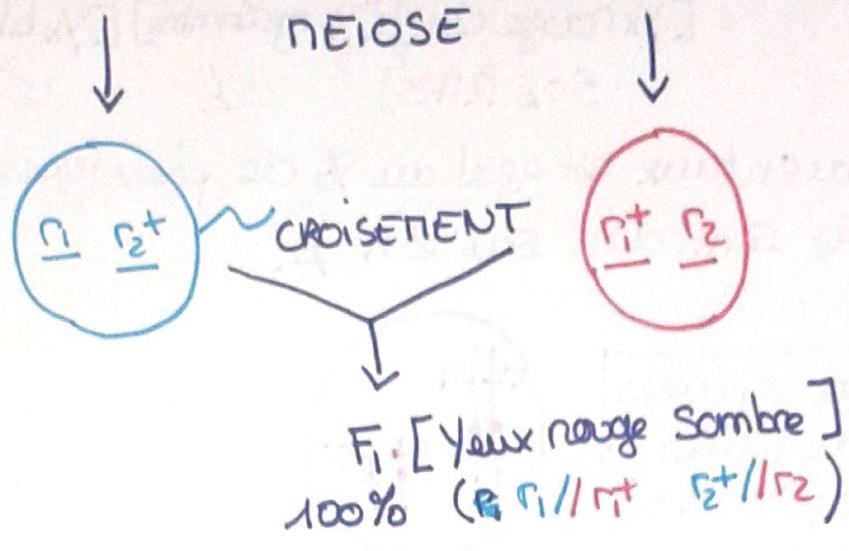 MEIOSE
r1 r2+ CROISEMENT r1+ r2
F1 : [Yeux rouge sombre]
100% (r1//r1+ r2+//r2)